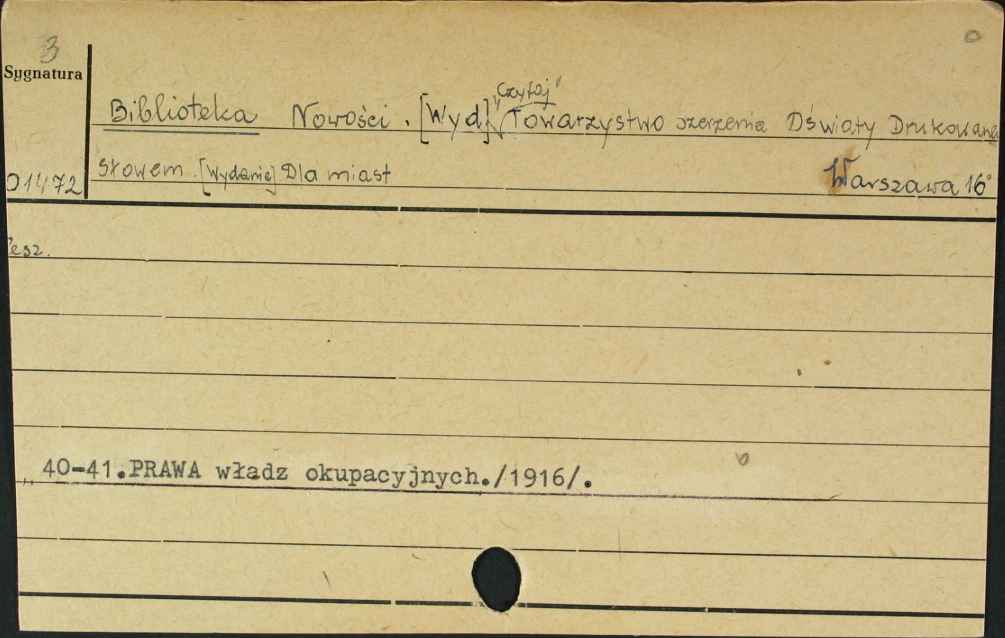 3
Sygnatura
„Czytaj"
Biblioteka Nowości. [Wyd] Towarzystwo szerzenia Oświaty Drukowane
słowem. [Wydanie] Dla miast
01472 Warszawa 16°
esz.
40-41.PRAWA władz okupacyjnych./1916/.